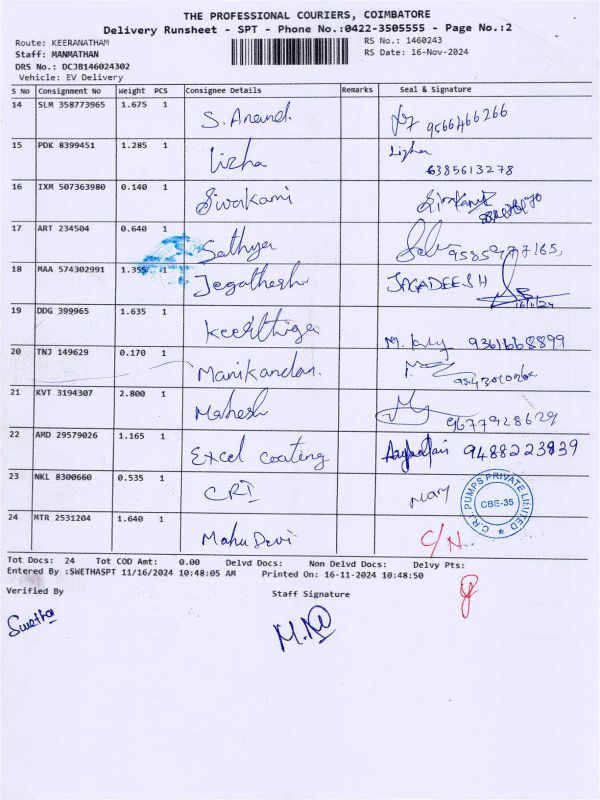 THE PROFESSIONAL COURIERS, COIMBATORE
Delivery Runsheet - SPT - Phone No.:0422-3505555 - Page No.:2
Route: KEERANATHAM
RS No.: 1460243
Staff: MANMATHAN
RS Date: 16-Nov-2024
DRS No.: DCJB146024302
Vehicle: EV Delivery
S No Consignment No Weight PCS Consignee Details Remarks Seal & Signature
14 SLM 358773965 1.675 1 S. Anand. 9566466266
15 PDK 8399451 1.285 1 Lizha Lizha
6385613278
16 IXM 507363980 0.140 1 Sivakami Sivakami
17 ART 234504 0.640 1 Sathya 9585977165
18 MAA 574302991 1.355 1 Jegathesh JAGADEESH
16/11/24
19 DDG 399965 1.635 1 Keerthiga M. 9361668899
20 TNJ 149629 0.170 1 Manikandan.
21 KVT 3194307 2.800 1 Mahesh 9677928629
22 AMD 29579026 1.165 1 Excel coating 9488223839
23 NKL 8300660 0.535 1 CRI Mary C.R.I. PUMPS PRIVATE LIMITED CBE-35
24 MTR 2531204 1.640 1 Mahu Devi C/N.
Tot Docs: 24 Tot COD Amt: 0.00 Delvd Docs: Non Delvd Docs: Delvy Pts:
Entered By :SWETHASPT 11/16/2024 10:48:05 AM Printed On: 16-11-2024 10:48:50
Verified By Staff Signature
Swetha